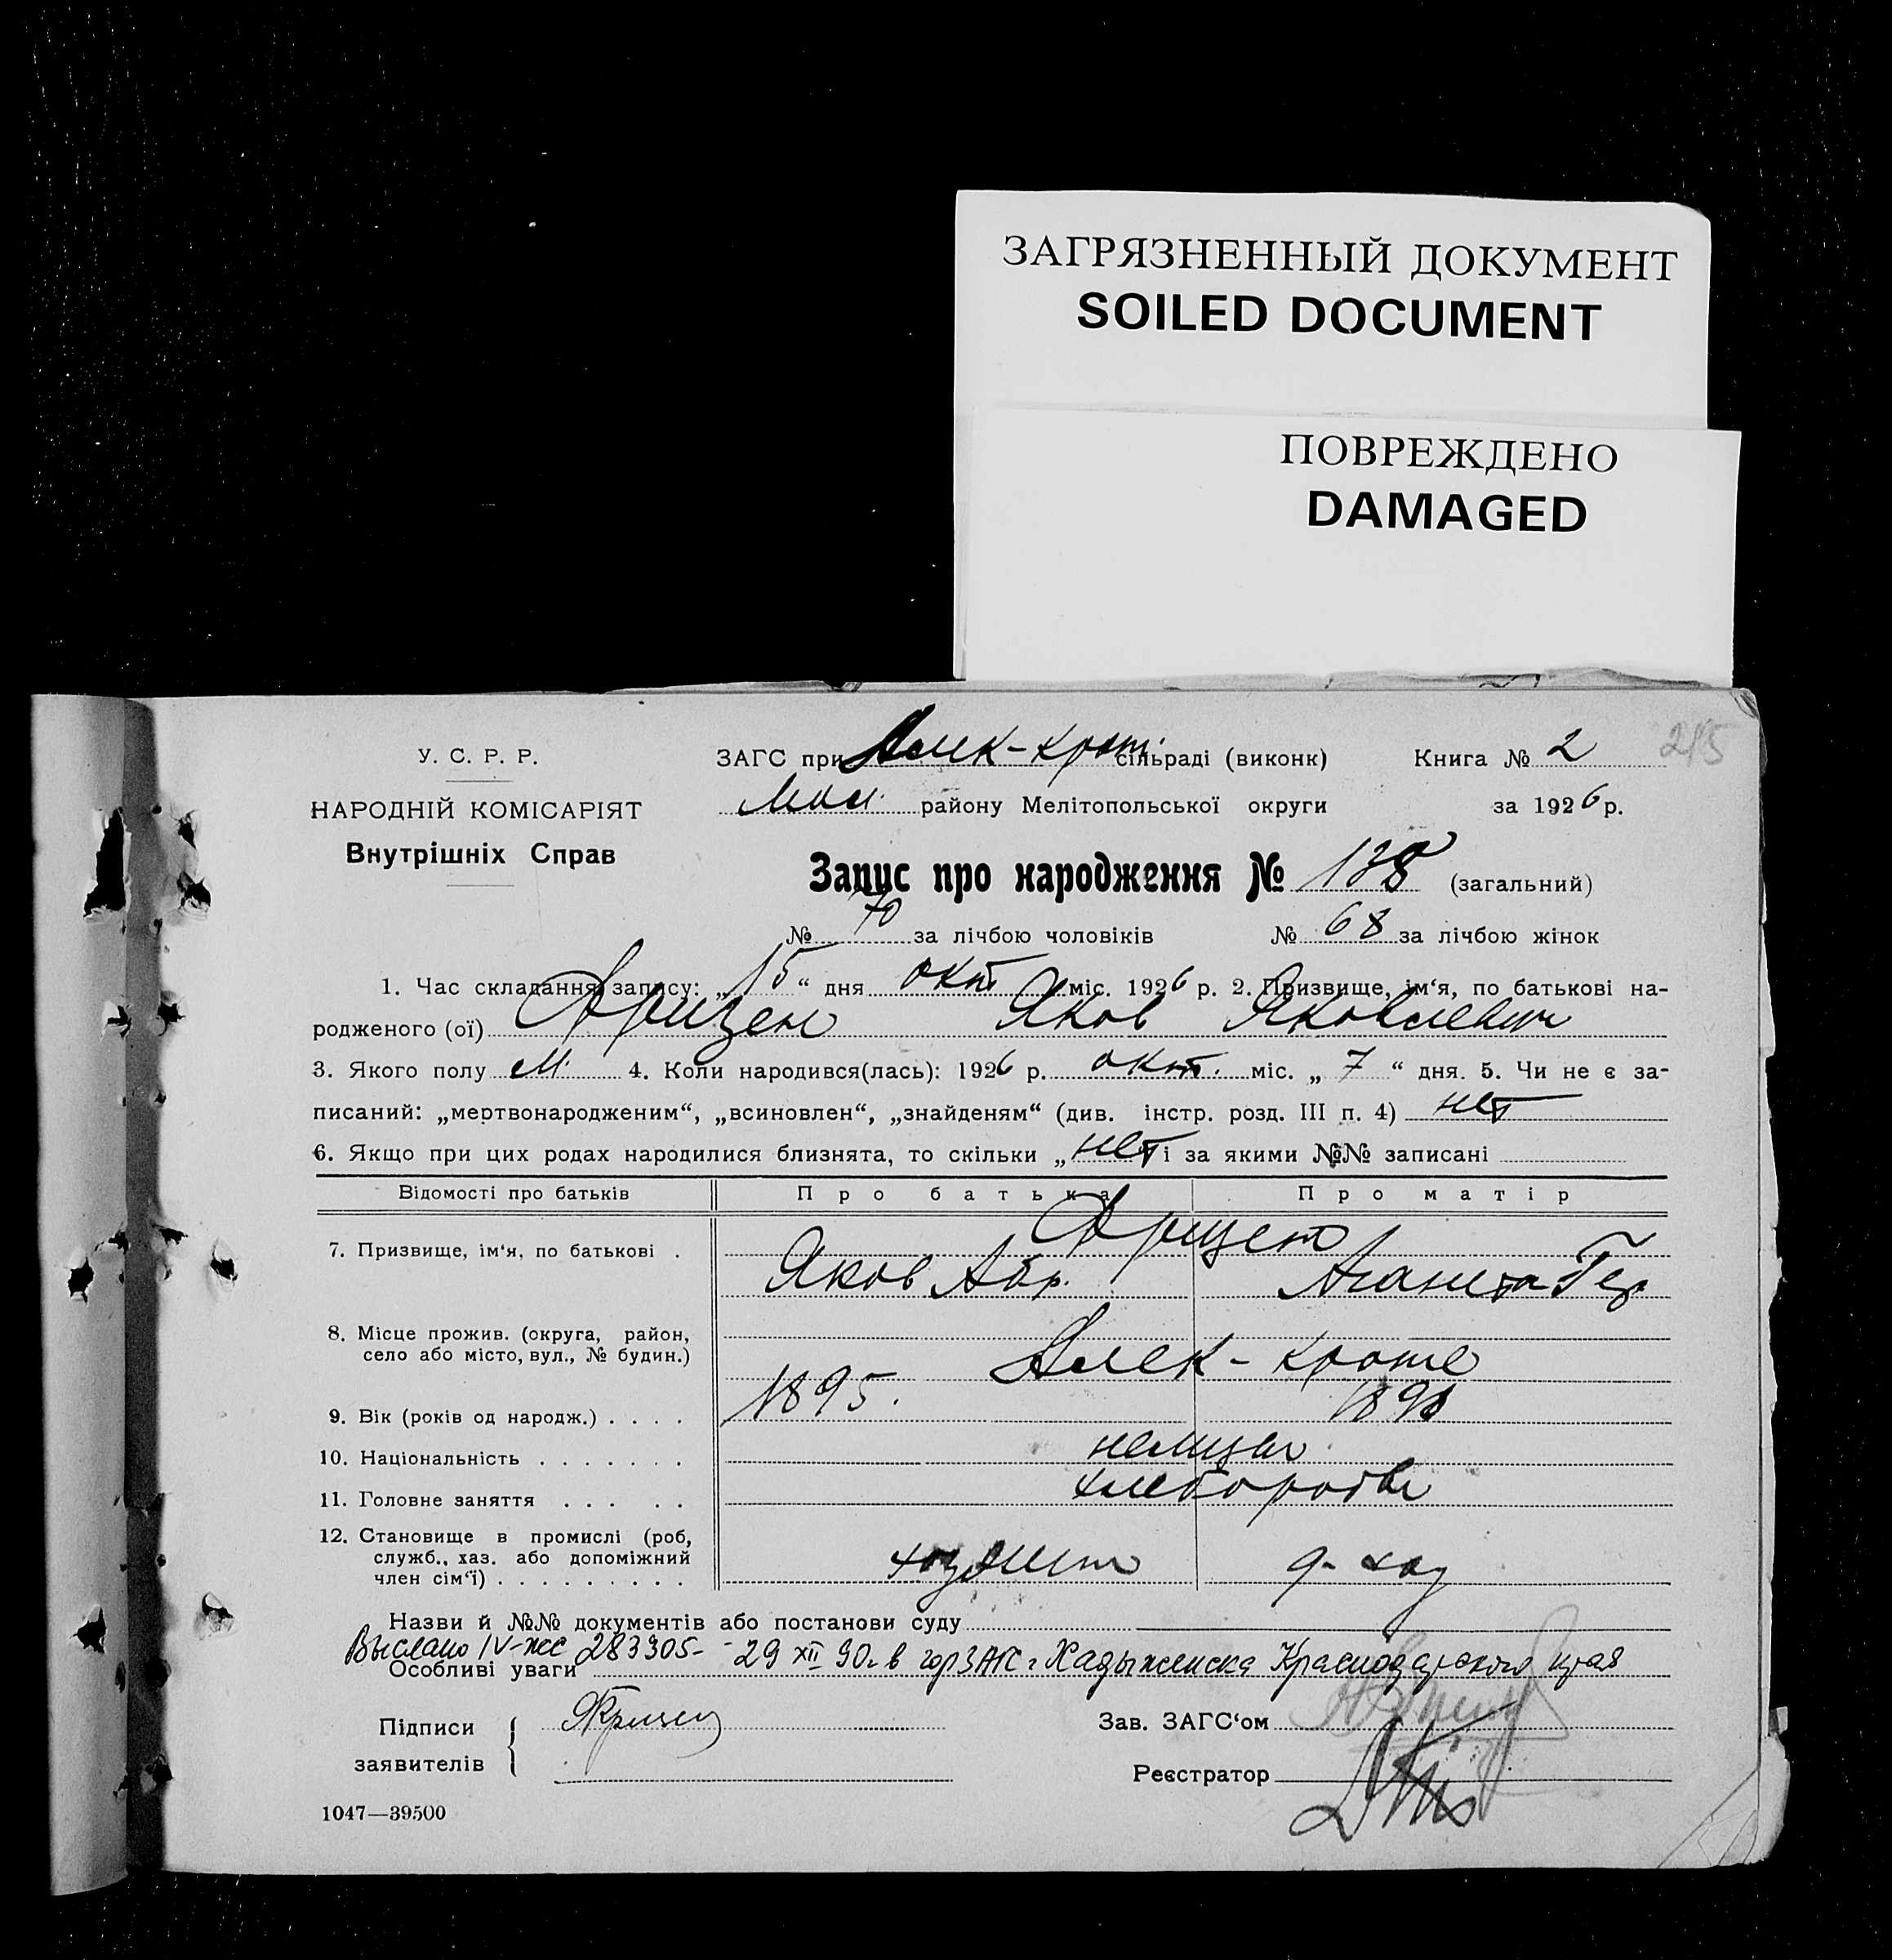 ЗАГРЯЗНЕННЫЙ ДОКУМЕНТ
SOILED DOCUMENT
ПОВРЕЖДЕНО
DAMAGED
215
У. С. Р. Р.
НАРОДНІЙ КОМІСАРІЯТ
Внутрішніх Справ
ЗАГС при Алек-крон. сільраді (виконк) Книга № 2
Мол. району Мелітопольської округи за 1926 р.
Запис про народження № 138 (загальний)
№ 70 за лічбою чоловіків № 68 за лічбою жінок
1. Час складання запису: „15“ дня окт міс. 1926 р. 2. Призвище, ім‘я, по батькові на-
родженого (ої) Фризен Яков Яковлевич
3. Якого полу М. 4. Коли народився(лась): 1926 р. окт. міс. „7“ дня. 5. Чи не є за-
писаний: „мертвонародженим“, „всиновлен“, „знайденям“ (див. інстр. розд. III п. 4) нет
6. Якщо при цих родах народилися близнята, то скільки „нет і за якими №№ записані
Відомості про батьків Про батька Про матір
Фризен
7. Призвище, ім‘я, по батькові . Яков Абр. Аганета Гер.
8. Місце прожив. (округа, район,
село або місто, вул., № будин.) Алек-кроне
9. Вік (років од народж.) . . . . 1895. 1898
10. Національність . . . . . . . немцы
11. Головне заняття . . . . . хлеборобы
12. Становище в промислі (роб,
служб., хаз. або допоміжний
член сім‘ї) . . . . . . . . .
Назви й №№ документів або постанови суду
Выслано IV-жс 283305 - 29 XII 90г. в горЗАГС г. Хадыженска Краснодарского края
Особливі уваги
Підписи
заявителів
Зав. ЗАГС‘ом
Реєстратор
1047—39500